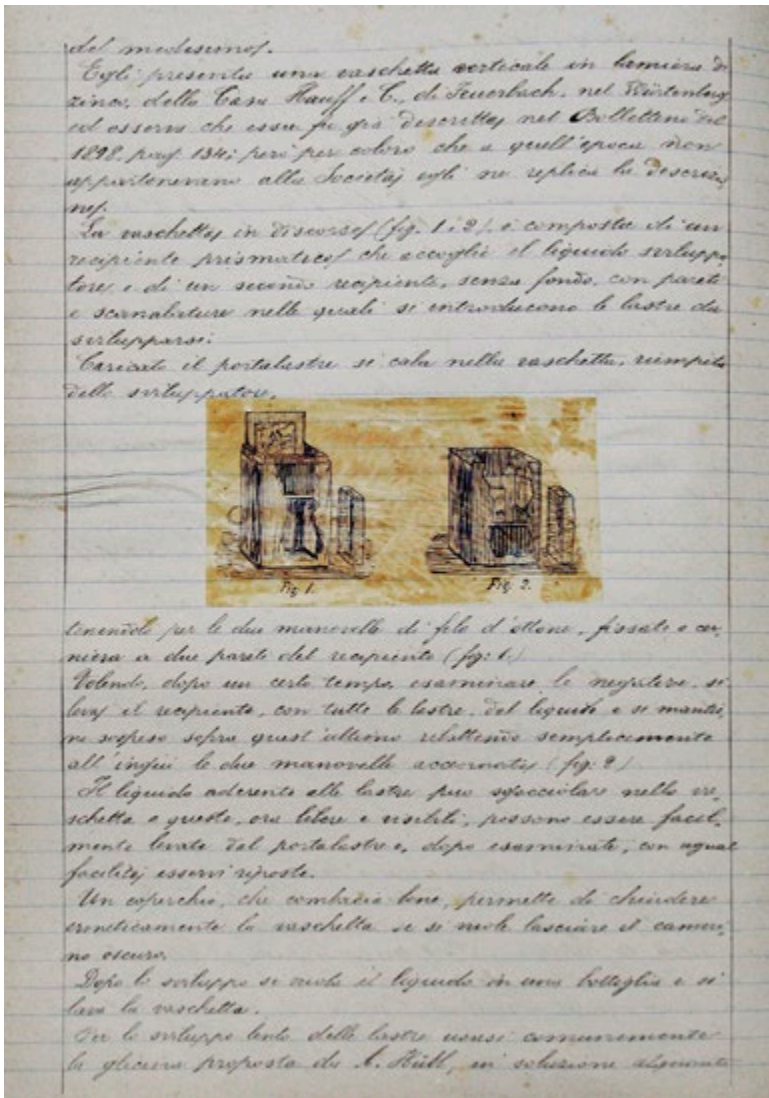 del medesimo.
Egli presenta una vaschetta verticale in lamiera di
zinco, della Casa Hauff e C., di Feuerbach, nel Würtenberg
ed osserva che essa fu già descritta nel Bollettino del
1898. pag. 134; però per coloro che a quell'epoca non
appartenevano alla Società, egli ne replica la descrizio
ne.
La vaschetta in discorso (fig. 1 e 2), è composta di un
recipiente prismatico che accoglie il liquido sviluppa
tore e di un secondo recipiente, senza fondo, con pareti
a scanalature nelle quali si introducono le lastre da
svilupparsi.
Caricato il portalastre si cala nella vaschetta, riempita
dello sviluppatore,
Fig. 1.
Fig. 2.
tenendolo per le due manovelle di filo d'ottone, fissate a cer
niera a due pareti del recipiente (fig. 1.)
Volendo, dopo un certo tempo, esaminare le negative, si
leva il recipiente, con tutte le lastre, dal liquido e si mantie
ne sospeso sopra quest'ultimo ribattendo semplicemente
all'ingiù le due manovelle accennate (fig. 2)
Il liquido aderente alle lastre può sgocciolare nella va
schetta e queste, ora libere e visibili, possono essere facil
mente levate dal portalastre e, dopo esaminate, con egual
facilità, esservi riposte.
Un coperchio, che combacia bene, permette di chiudere
ermeticamente la vaschetta se si vuole lasciare il cameri
no oscuro.
Dopo lo sviluppo si vuota il liquido in una bottiglia e si
lava la vaschetta.
Per lo sviluppo lento delle lastre usasi comunemente
la glicina proposta da A. Hübl, in soluzione